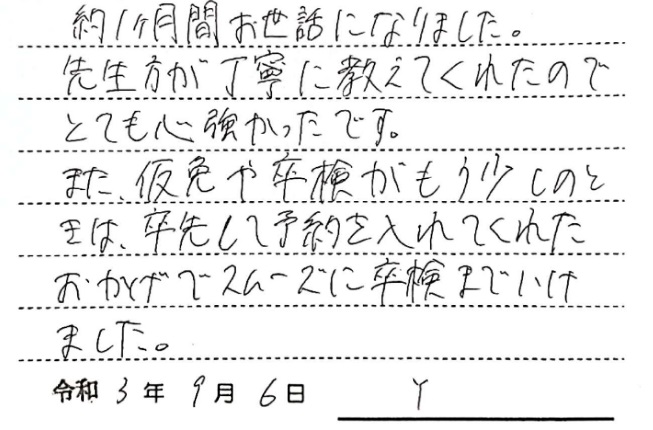 約1ヶ月間お世話になりました。
先生方が丁寧に教えてくれたので
とても心強かったです。
また、仮免や卒検がもう少しのと
きは、率先して予約を入れてくれた
おかげでスムーズに卒検までいけ
ました。
令和3年9月6日 Y